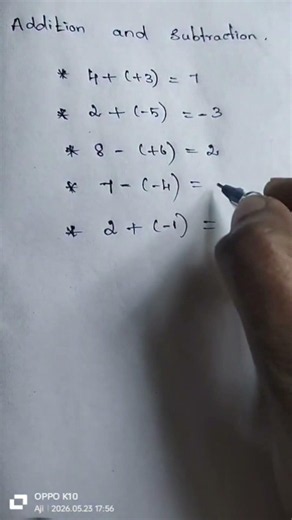 Addition and Subtraction.
* 4 + (+3) = 7
* 2 + (-5) = -3
* 8 - (+6) = 2
* 7 - (-4) =
* 2 + (-1) =
OPPO K10
Aji | 2026.05.23 17:56